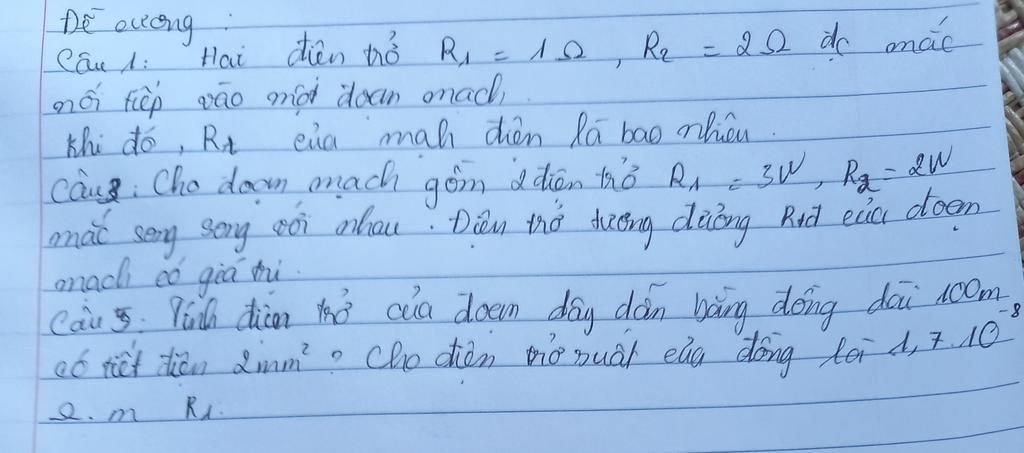 Đề cương :
Câu 1: Hai điện trở R1 = 1Ω , R2 = 2Ω đc mắc
nối tiếp vào một đoạn mạch.
Khi đó , R1 của mạh điện là bao nhiêu.
Câu 2: Cho đoạn mạch gồm 2 điện trở R1 = 3W , R2 = 2W
mắc song song với nhau. Điện trở tương đường Rtđ của đoạn
mạch có giá trị.
Câu 5. Tính điện trở của đoạn dây dẫn bằng đồng dài 100m
có tiết diện 2mm² ? Cho điện trở suất của đồng là 1,7.10⁻⁸
Ω.m R1.